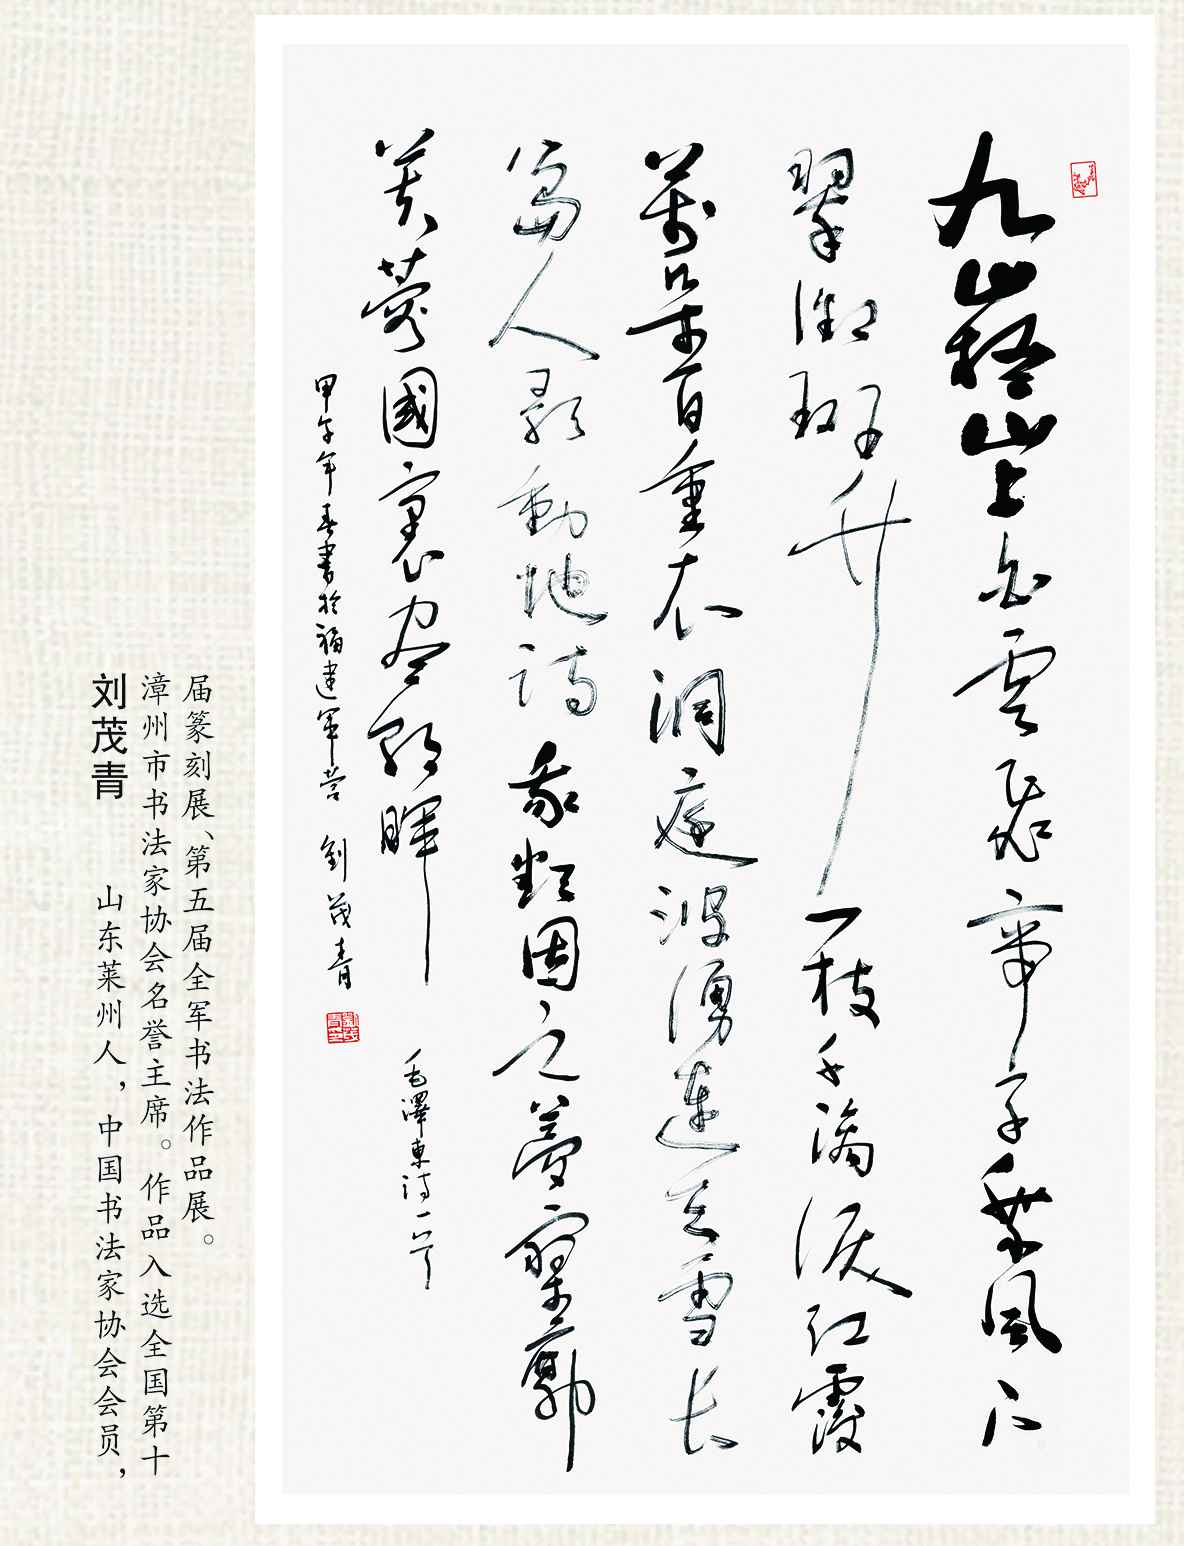 九嶷山上白雲飛帝子乘風下
翠微斑竹一枝千滴淚紅霞
萬朵百重衣洞庭波湧連天雪长
島人歌動地詩我欲因之夢寥廓
芙蓉國裏盡朝暉 毛澤東詩一首
甲午年春書於福建軍營 劉茂青
刘茂青 山东莱州人，中国书法家协会会员，
漳州市书法家协会名誉主席。作品入选全国第十
届篆刻展、第五届全军书法作品展。